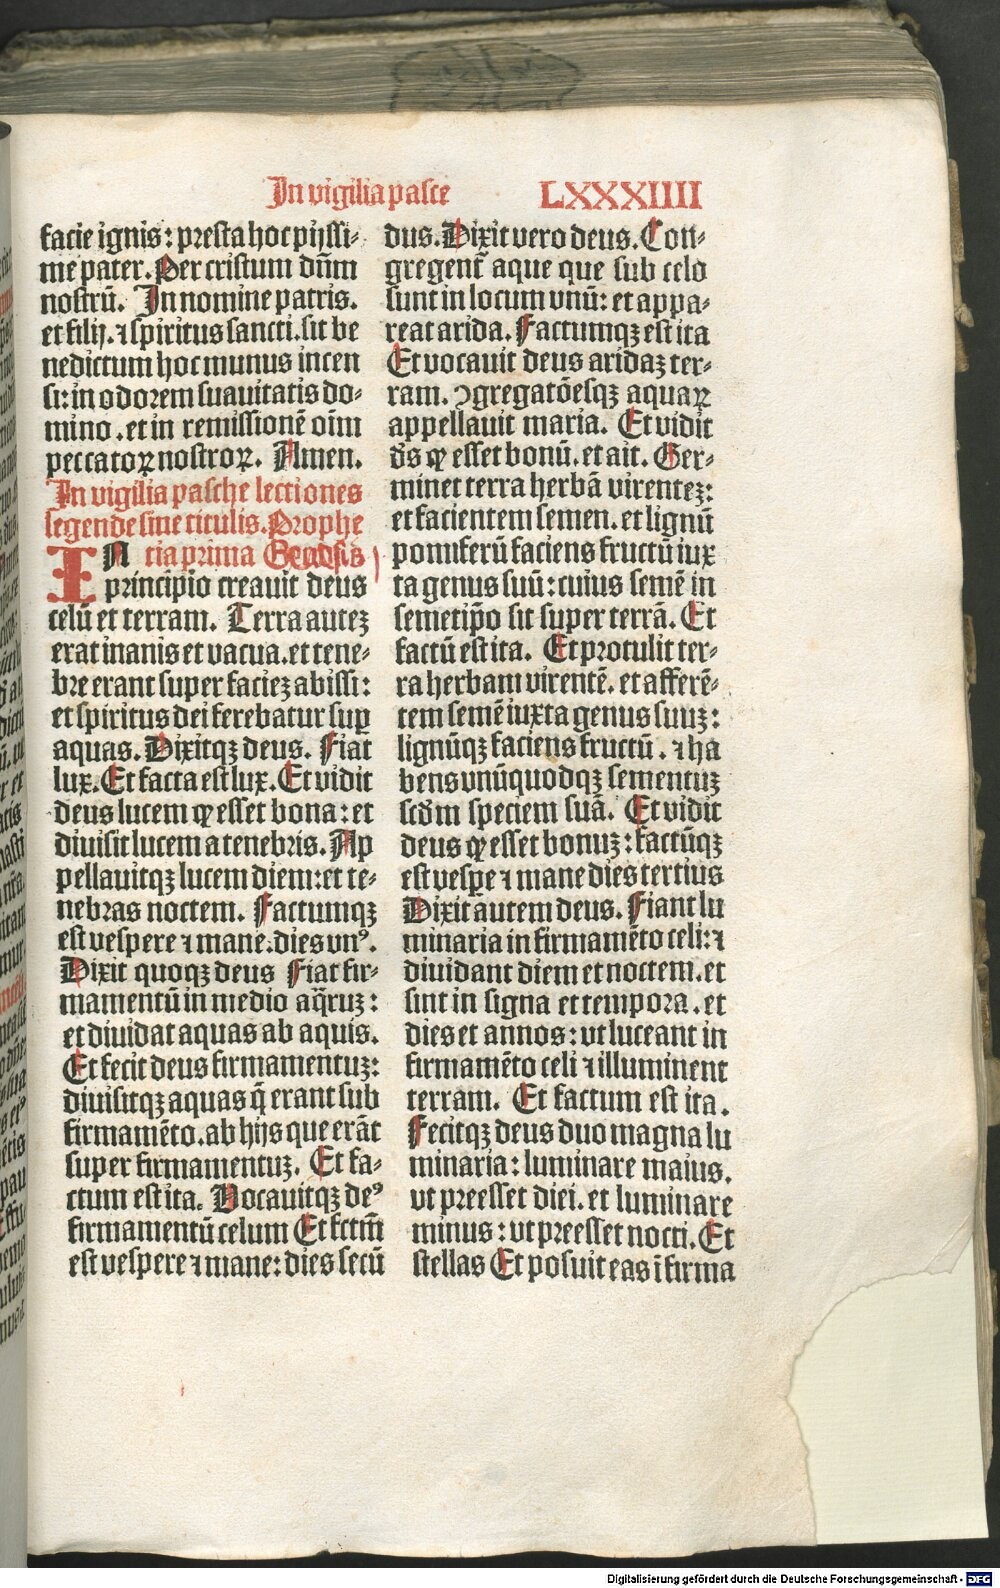 In vigilia pasce LXXXIIII
facie ignis: presta hoc pijssi⸗
me pater. Per cristum dn̄m
nostrū. In nomine patris.
et filij. ⁊ spiritus sancti. sit be
nedictum hoc munus incen
si: in odorem suauitatis do⸗
mino. et in remissionē oīm
peccatoꝝ nostroꝝ. Amen.
In vigilia pasche lectiones
legende sine titulis. Prophe
tia prima Genesis
IN
principio creauit deus
celū et terram. Terra auteꝫ
erat inanis et vacua. et tene⸗
bre erant super facieꝫ abissi:
et spiritus dei ferebatur suꝑ
aquas. Dixitqꝫ deus. Fiat
lux. Et facta est lux. Et vidit
deus lucem ꝙ esset bona: et
diuisit lucem a tenebris. Ap
pellauitqꝫ lucem diem: et te⸗
nebras noctem. Factumqꝫ
est vespere ⁊ mane: dies vnꝰ.
Dixit quoqꝫ deus Fiat fir⸗
mamentū in medio aq̄ruꝫ:
et diuidat aquas ab aquis.
Et fecit deus firmamentuꝫ:
diuisitqꝫ aquas q̄ erant sub
firmamēto. ab hijs que erāt
super firmamentuꝫ. Et fa⸗
ctum est ita. Vocauitqꝫ deꝰ
firmamentū celum Et fctm̄
est vespere ⁊ mane: dies secū
dus. Dixit vero deus. Con⸗
gregent̄ aque que sub celo
sunt in locum vnū: et appa⸗
reat arida. Factumqꝫ est ita
Et vocauit deus aridaꝫ ter⸗
ram. ꝯgregatōesqꝫ aquaꝝ
appellauit maria. Et vidit
ds̄ ꝙ esset bonū. et ait. Ger⸗
minet terra herbā virenteꝫ:
et facientem semen. et lignū
pomiferū faciens fructū iux
ta genus suū: cuius semē in
semetip̄o sit super terrā. Et
factū est ita. Et protulit ter⸗
ra herbam virentē. et afferē⸗
tem semē iuxta genus suuꝫ:
lignūqꝫ faciens fructū. ⁊ ha
bens vnūquodqꝫ sementuꝫ
scd̄m speciem suā. Et vidit
deus ꝙ esset bonuꝫ: factūqꝫ
est vespe ⁊ mane dies tertius
Dixit autem deus. Fiant lu
minaria in firmamēto celi: ⁊
diuidant diem et noctem. et
sint in signa et tempora. et
dies et annos: vt luceant in
firmamēto celi ⁊ illuminent
terram. Et factum est ita.
Fecitqꝫ deus duo magna lu
minaria: luminare maius.
vt preesset diei. et luminare
minus: vt preesset nocti. Et
stellas Et posuit eas ī firma
Digitalisierung gefördert durch die Deutsche Forschungsgemeinschaft - DFG